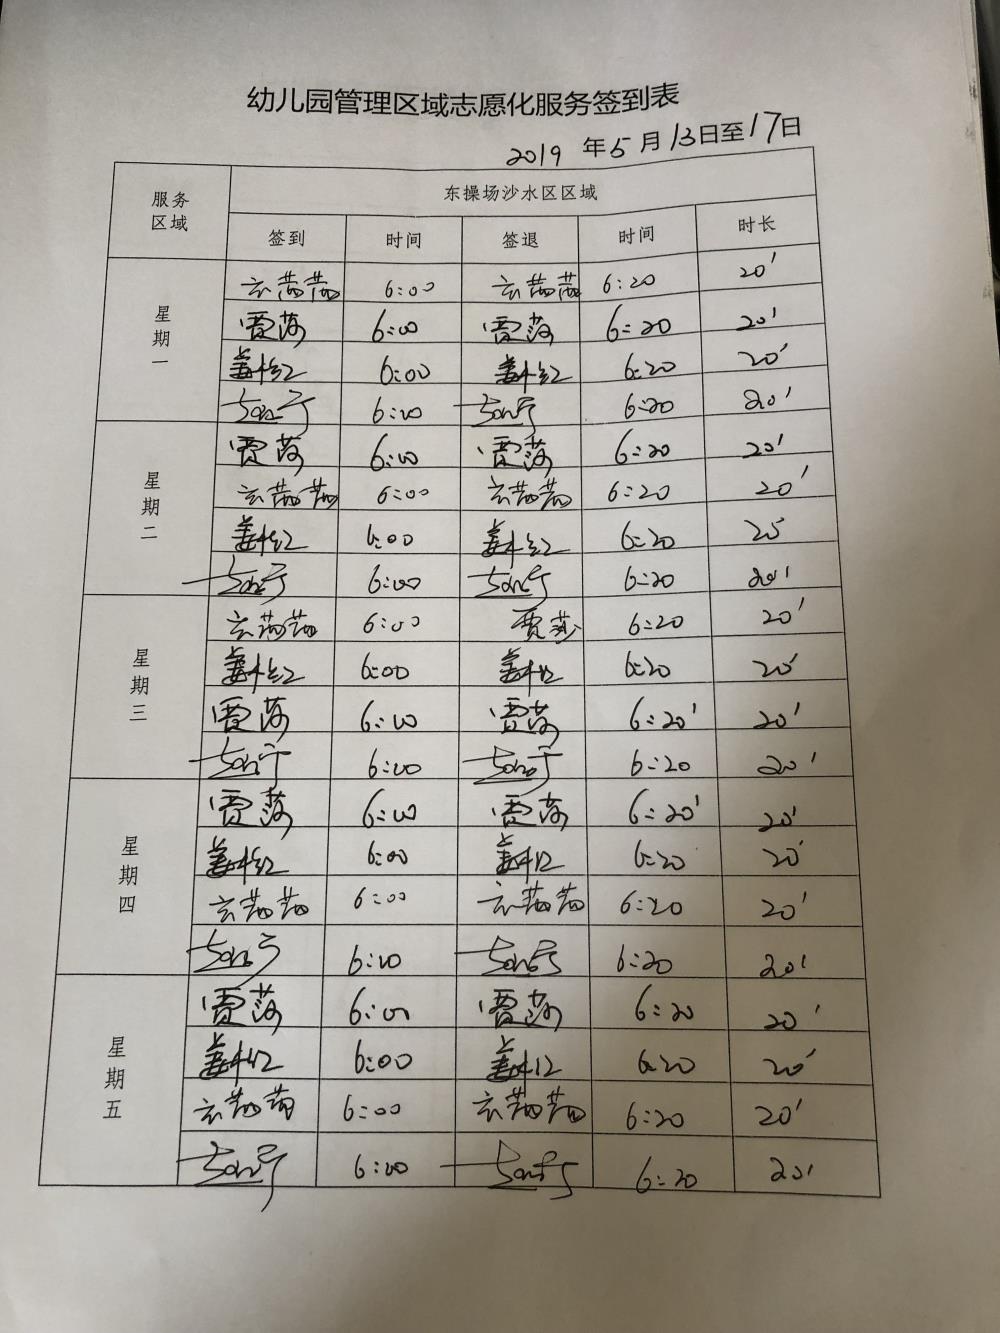 幼儿园管理区域志愿化服务签到表
2019 年5月13日至17日
服务区域 东操场沙水区区域
签到 时间 签退 时间 时长
星期一
6:00 6:20 20'
贾莎 6:00 贾莎 6:20 20'
姜 红 6:00 姜 红 6:20 20'
6:00 6:20 20'
星期二
贾莎 6:00 贾莎 6:20 20'
6:00 6:20 20'
姜 红 6:00 姜 红 6:20 20'
6:00 6:20 20'
星期三
6:00 贾莎 6:20 20'
姜 红 6:00 姜 红 6:20 20'
贾莎 6:00 贾莎 6:20' 20'
6:00 6:20 20'
星期四
贾莎 6:00 贾莎 6:20' 20'
姜 红 6:00 姜 红 6:20 20'
6:00 6:20 20'
6:00 6:20 20'
星期五
贾莎 6:00 贾莎 6:20 20'
姜 红 6:00 姜 红 6:20 20'
6:00 6:20 20'
6:00 6:20 20'